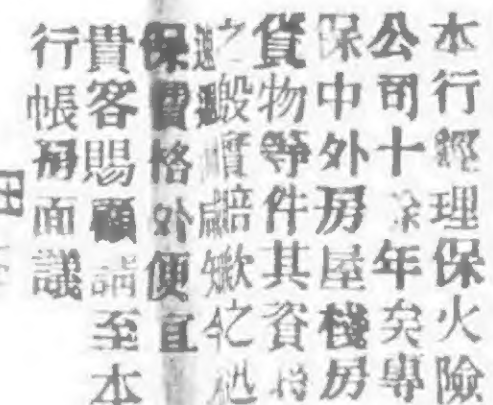 本行經理保火險
公司十餘年矣專
保中外房屋棧房
貨物等件其資
之殷實賠欵之
遐邇咸知
保費格外便宜
貴客賜顧請至本
行帳房面議